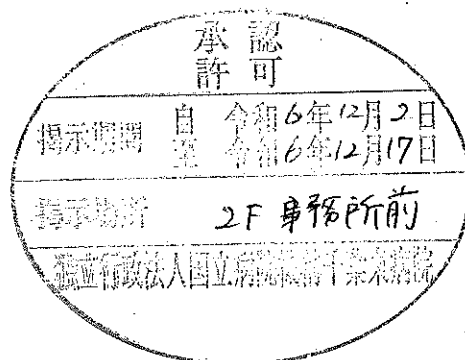 承認
許可
掲示期間 自 令和6年12月2日
至 令和6年12月17日
掲示場所 2F 事務所前
独立行政法人国立病院機構千葉東病院